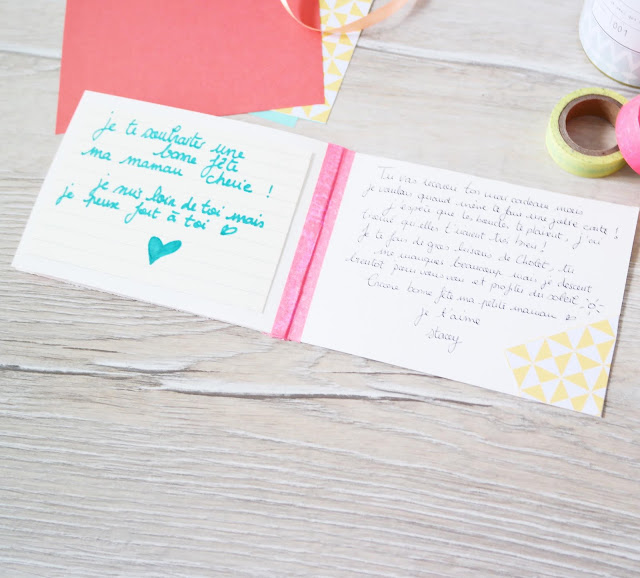 je te souhaiter une
bonne fête
ma maman cherie !
je suis loin de toi mais
je peux fort à toi
Tu vas recevoir ton cadeau mais
je voulais quand même te faire une jolie carte !
j'espère que les boucles te plairont, j'ai
trouvé qu'elles t'iraient très bien !
Je te fais de gros bisous de Cholet, tu
me manques beaucoup mais je descend
bientôt pour vous voir et profiter du soleil
Encore bonne fête ma petite maman
je t'aime
Stacey
001